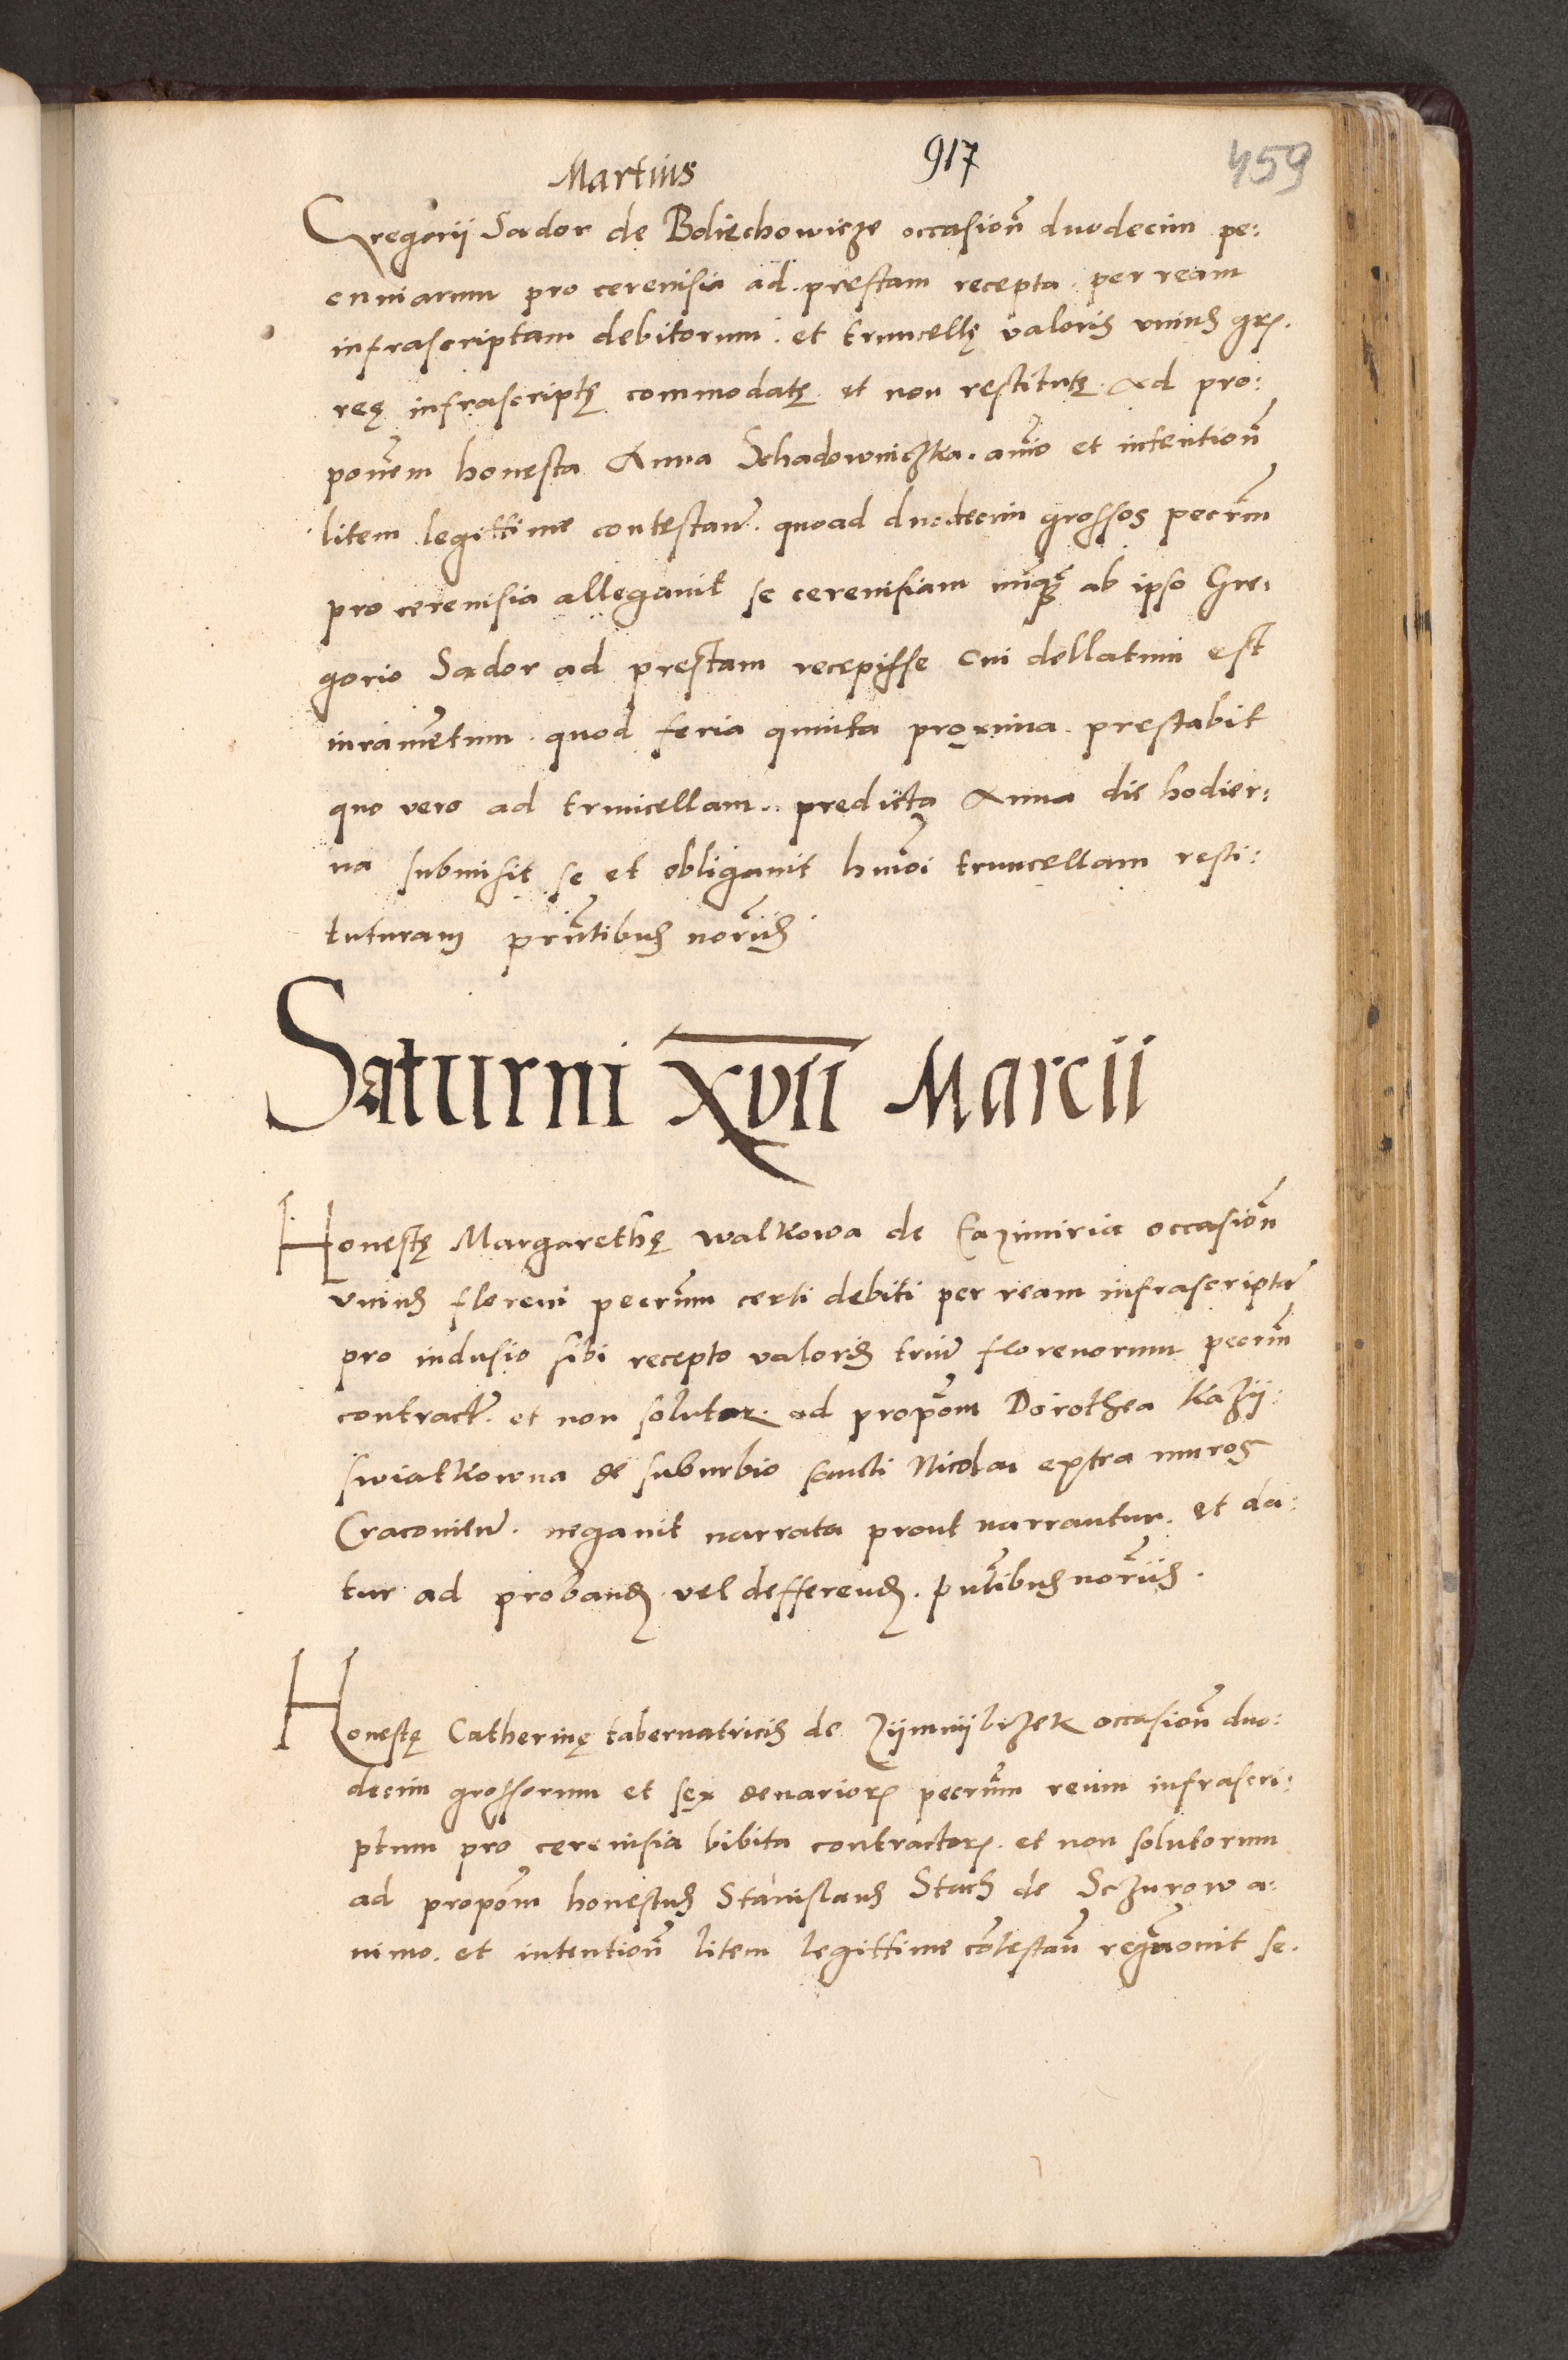 Martius 917 459
Gregorii Sador de Boliechowicze occasioñ duodecim pe:
cuniarum pro cerevisia ad prestam recepta per ream
infrascriptam debitorum. et truncellę valoris unius grꝭ.
reę infrascriptę commodatę et non restitutę. Ad pro:
poñem honesta Anna Schadowniczka. aĩo et intentioñ
litem legittime contestañ. quoad duodecim grossos pecr̃m
pro cerevisia allegavit se cerevisiam nũqꝫ ab ipso Gre:
gorio Sador ad prestam recepisse cui dellatum est
iuramẽtum. quod feria quinta proxima. prestabit
quo vero ad truncellam.. predicta Anna die hodier:
na submisit se et obligavit hmõi truncellam resti:
turam pñtibus nor̃iis
Saturni XVII Marcii
Honestę Margarethę walkowa de Cazimiria occasioñ
unius floreni pecr̃um certi debiti per ream infrascriptã
pro indusio sibi recepto valoris triũ florenorum pecr̃m
contractĩ. et non solutor. ad propõm Dorothea Kazÿ:
swiatkowna de suburbio sancti Nicolai extra muros
Cracovieñ. negavit narrata prout narrantur. et da:
tur ad probanđ. vel defferenđ. pñtibus nor̃iis.
Honestę Catherinę tabernatricis de Zÿmnÿ liczek occasioñ duo:
decim grossorum et sex denariorꝭ pecr̃um reum infrascri:
ptum pro cerevisia bibita contractorꝭ. et non solutorum
ad propõm honestus Stanislaus Stach de Sczurow a:
nimo. et intentioñ litem legittime cõtestañ recognovit se.